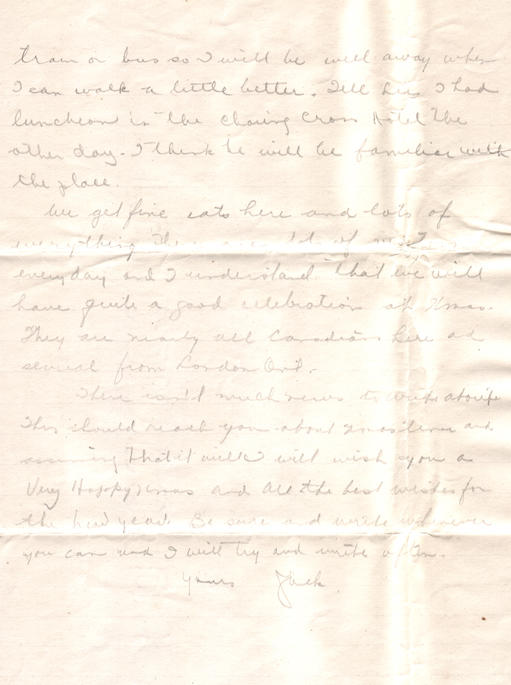 train or bus so I will be well away when
I can walk a little better. Tell him I had
luncheon in the Charing Cross Hotel the
other day. I think he will be familiar with
the place.
We get fine eats here and lots of
everything. There are lots of
everyday and I understand that we will
have quite a good celebration at Xmas.
They are nearly all Canadians here and
several from London Ont.
There isn't much news to write about
This should reach you about Xmas time and
assuming that it will I will wish you a
Very Happy Xmas and all the best wishes for
the New Year. Be sure and write whenever
you can and I will try and write often.
Yours Jack.